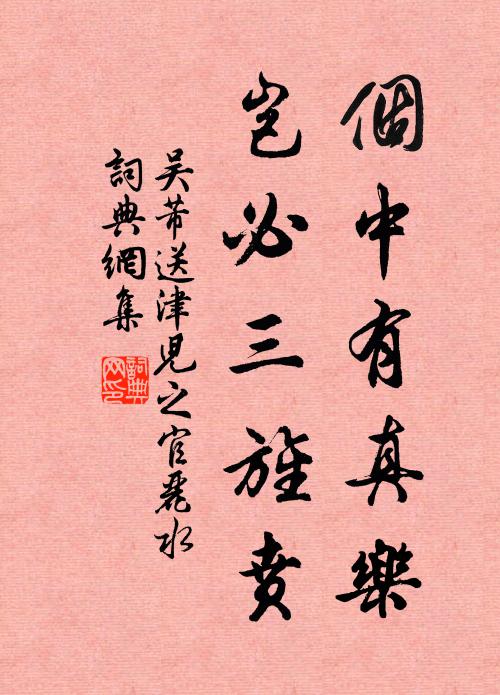 個中有真樂
豈必三旌賁
吴芾送津兒之官麗水
詞典網集
詞典
网印